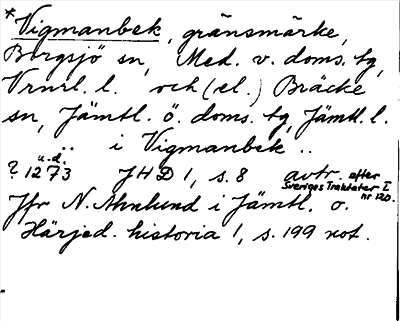 *Vigmanbek, gränsmärke,
Borgsjö sn, Med. v. doms. tg,
Vrnrl. l. och (el.) Bräcke
sn, Jämtl. ö. doms. tg, Jämtl. l.
.. i Vigmanbek ..
u.d.
? 1273 JHD 1, s. 8 avtr. efter
Sveriges Traktater I
nr 120.
Jfr N. Ahnlund i Jämtl. o.
Härjed. historia 1, s. 199 not.